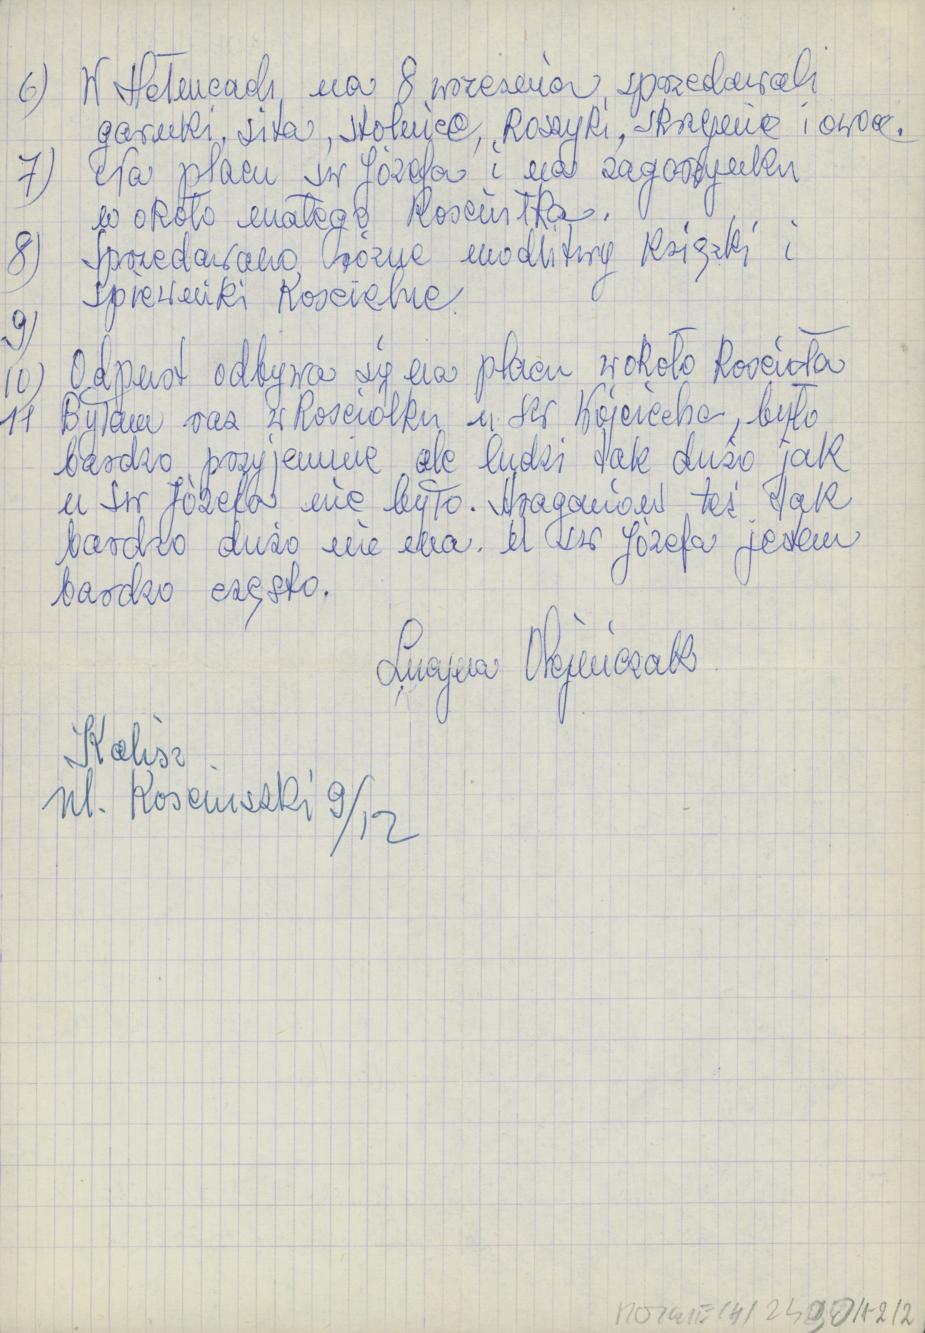 6) W Hełmcach, na 8 wrzesnia sprzedawali
garnki, sita, stolnice, koszyki, skrzynie i owoc.
7) Na placu sw Józefa i na zagorzynku
w około małego Kosciołka.
8) Sprzedawano różne modlitwy książki i
spiewniki Koscielne
9)
10) Odpust odbywa się na placu wokoło Kościoła
11 Byłam raz w Kosciolku u sw Wojciecha, było
bardzo przyjemnie ale ludzi tak dużo jak
u sw Józefa nie było. Straganow też tak
bardzo dużo nie ma. U sw Józefa jestem
bardzo często.
Olejniczak
Kalisz
ul. Kosciuszki 9/12